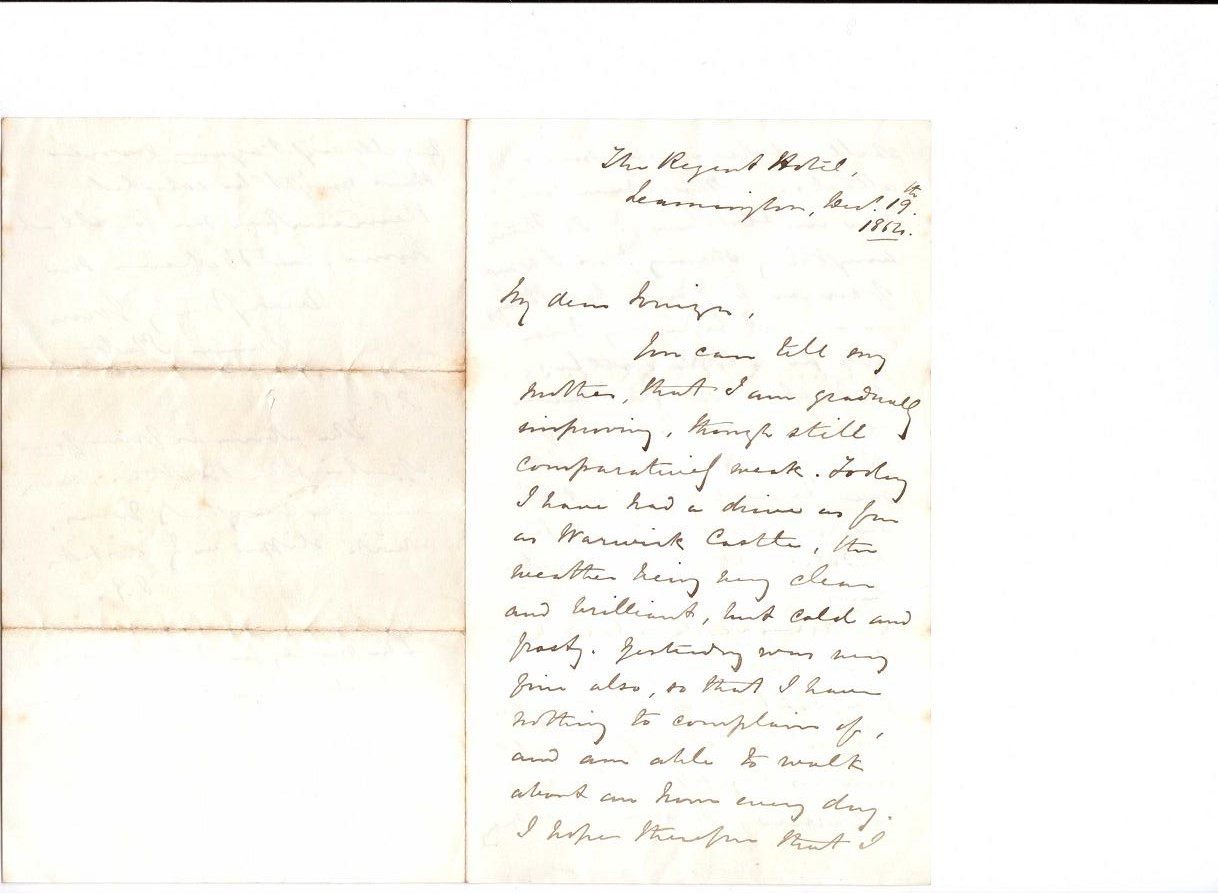 The Regent Hotel,
Leamington, Decr. 19th
1864.
My dear
You can tell my
mother, that I am gradually
improving, though still
comparatively weak. Today
I have had a drive as far
as Warwick Castle, the
weather being very clear
and brilliant, but cold and
frosty. Yesterday was very
fine also, so that I have
nothing to complain of,
and am able to walk
about an hour every day.
I hope therefore that I